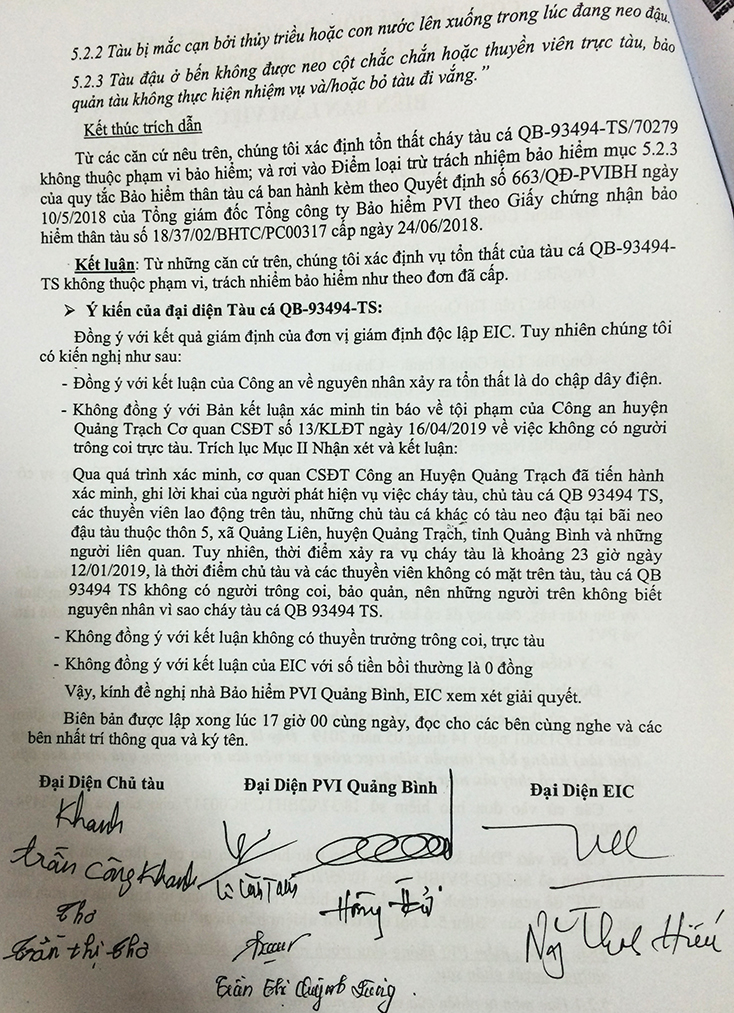 5.2.2 Tàu bị mắc cạn bởi thủy triều hoặc con nước lên xuống trong lúc đang neo đậu.
5.2.3 Tàu đậu ở bến không được neo cột chắc chắn hoặc thuyền viên trực tàu, bảo
quản tàu không thực hiện nhiệm vụ và/hoặc bỏ tàu đi vắng.”
Kết thúc trích dẫn
Từ các căn cứ nêu trên, chúng tôi xác định tổn thất cháy tàu cá QB-93494-TS/70279
không thuộc phạm vi bảo hiểm; và rơi vào Điểm loại trừ trách nhiệm bảo hiểm mục 5.2.3
của quy tắc Bảo hiểm thân tàu cá ban hành kèm theo Quyết định số 663/QĐ-PVIBH ngày
10/5/2018 của Tổng giám đốc Tổng công ty Bảo hiểm PVI theo Giấy chứng nhận bảo
hiểm thân tàu số 18/37/02/BHTC/PC00317 cấp ngày 24/06/2018.
Kết luận: Từ những căn cứ trên, chúng tôi xác định vụ tổn thất của tàu cá QB-93494-
TS không thuộc phạm vi, trách nhiệm bảo hiểm như theo đơn đã cấp.
➤ Ý kiến của đại diện Tàu cá QB-93494-TS:
Đồng ý với kết quả giám định của đơn vị giám định độc lập EIC. Tuy nhiên chúng tôi
có kiến nghị như sau:
- Đồng ý với kết luận của Công an về nguyên nhân xảy ra tổn thất là do chập dây điện.
- Không đồng ý với Bản kết luận xác minh tin báo về tội phạm của Công an huyện
Quảng Trạch Cơ quan CSĐT số 13/KLĐT ngày 16/04/2019 về việc không có người
trông coi trực tàu. Trích lục Mục II Nhận xét và kết luận:
Qua quá trình xác minh, cơ quan CSĐT Công an Huyện Quảng Trạch đã tiến hành
xác minh, ghi lời khai của người phát hiện vụ việc cháy tàu, chủ tàu cá QB 93494 TS,
các thuyền viên lao động trên tàu, những chủ tàu cá khác có tàu neo đậu tại bãi neo
đậu tàu thuộc thôn 5, xã Quảng Liên, huyện Quảng Trạch, tỉnh Quảng Bình và những
người liên quan. Tuy nhiên, thời điểm xảy ra vụ cháy tàu là khoảng 23 giờ ngày
12/01/2019, là thời điểm chủ tàu và các thuyền viên không có mặt trên tàu, tàu cá QB
93494 TS không có người trông coi, bảo quản, nên những người trên không biết
nguyên nhân vì sao cháy tàu cá QB 93494 TS.
- Không đồng ý với kết luận không có thuyền trưởng trông coi, trực tàu
- Không đồng ý với kết luận của EIC với số tiền bồi thường là 0 đồng
Vậy, kính đề nghị nhà Bảo hiểm PVI Quảng Bình, EIC xem xét giải quyết.
Biên bản được lập xong lúc 17 giờ 00 cùng ngày, đọc cho các bên cùng nghe và các
bên nhất trí thông qua và ký tên.
Đại Diện Chủ tàu Đại Diện PVI Quảng Bình Đại Diện EIC
Khanh
trần Công Khanh
Thơ
Trần thị Thơ
Trần Thị Quỳnh